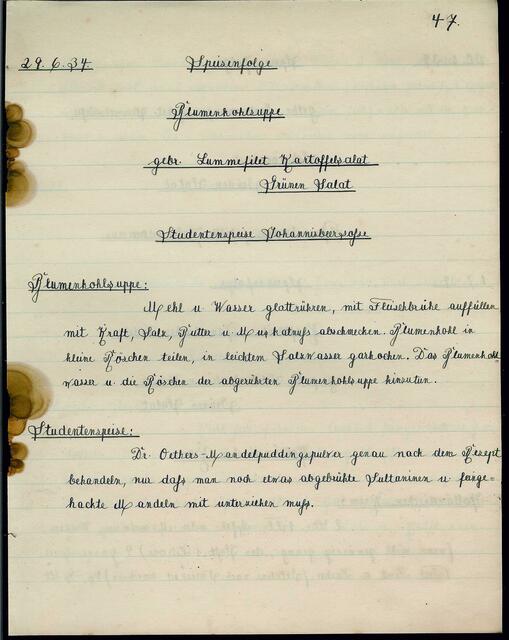 47.
29.6.34 Speisenfolge
Blumenkohlsuppe
gebr. Lummefilet Kartoffelsalat
Grünen Salat
Studentenspeise Johannisbeersoße
Blumenkohlsuppe:
Mehl u Wasser glattrühren, mit Fleischbrühe auffüllen
mit Kraft, Salz, Butter u Muskatnuß abschmecken. Blumenkohl in
kleine Röschen teilen, in leichtem Salzwasser garkochen. Das Blumenkohl
wasser u die Röschen der abgerührten Blumenkohlsuppe hinzutun.
Studentenspeise:
Dr. Oethers-Mandelpuddingspulver genau nach dem Rezept
behandeln, nur daß man noch etwas abgebrühte Sultaninen u feinge-
hackte Mandeln mit unterziehen muß.